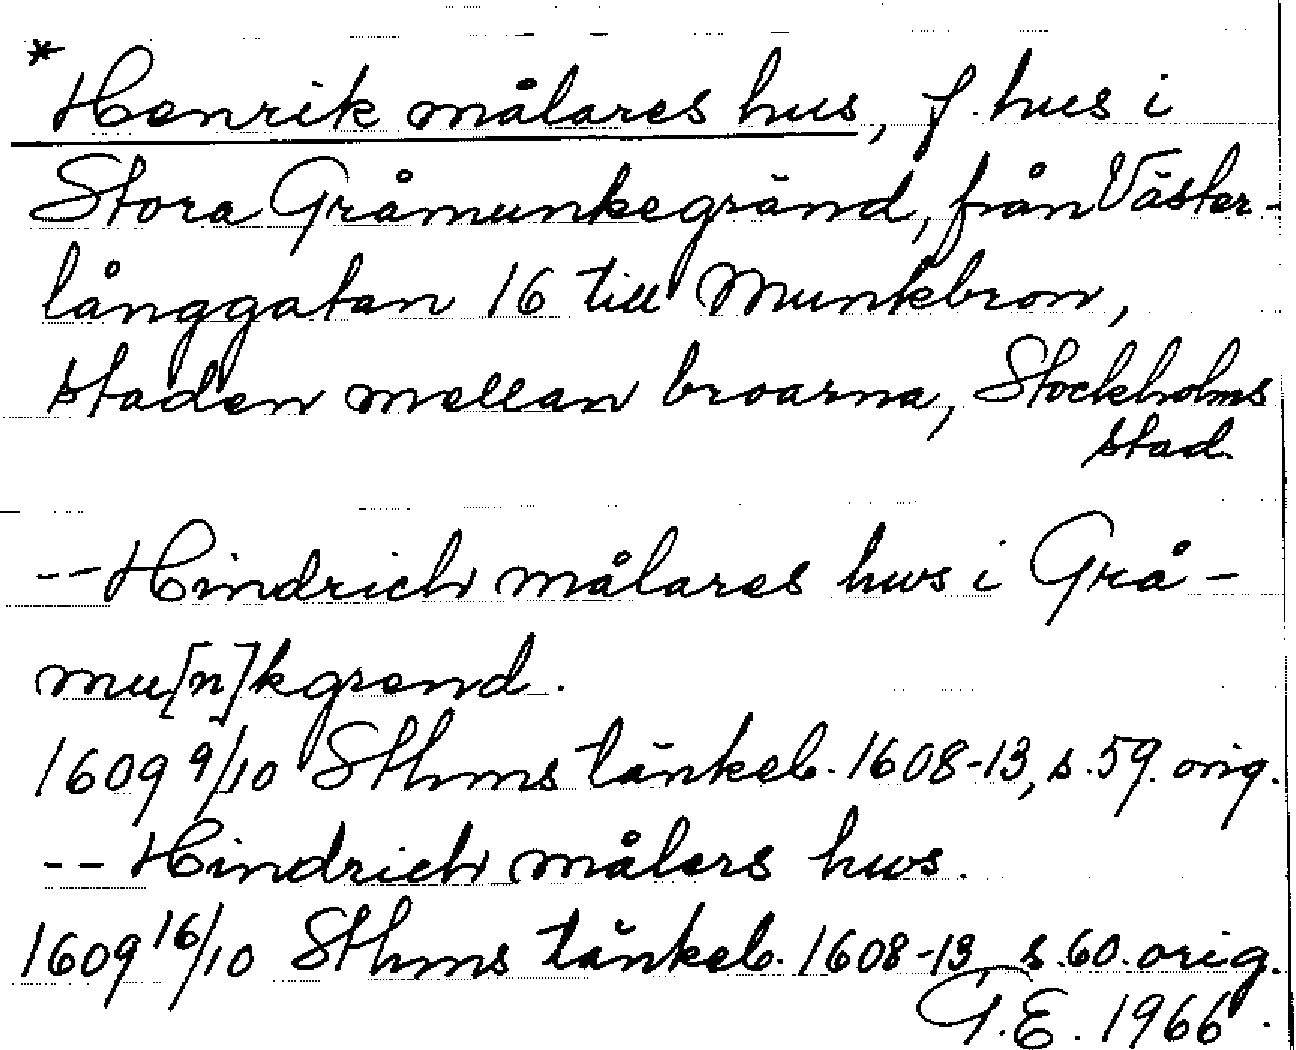 * Henrik målares hus, f. hus i
Stora Gråmunkegränd, från Väster-
långgatan 16 till Munkbron,
staden mellan broarna, Stockholms
stad.
-- Hindrich målares hws i Grå-
mu[n]kgrend.
1609 9/10 Sthms tänkeb. 1608-13, s. 59. orig.
-- Hindrich målers hws.
1609 16/10 Sthms tänkeb. 1608-13, s. 60. orig.
G.E. 1966.